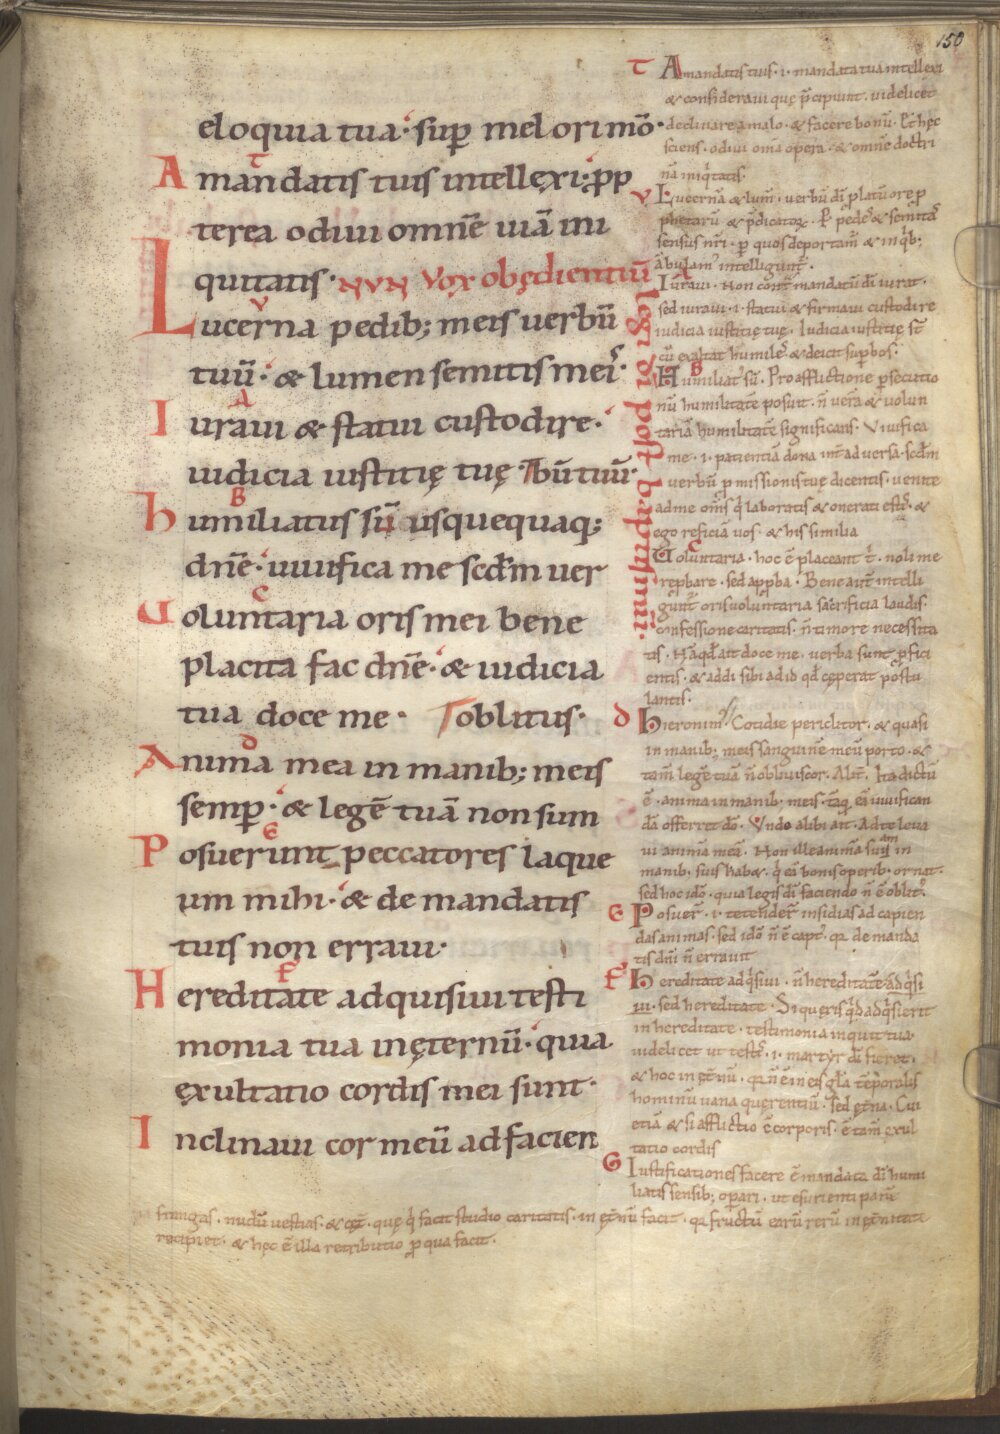 150
eloquia tua· sup̄ mel ori mō·
A mandatis tuis intellexi· pp
terea odiui omnē uiā ini
quitatis· NVN Vox obędientiū
legi di post baptismum·
Lucerna pedib; meis uerbū
tuū· & lumen semitis meis·
Iuraui & statui custodire·
iudicia iustitię tuę· bū tuū·
humiliatus sū usquequaq;
dn̄e· uiuifica me scd̄m uer
Uoluntaria oris mei bene
placita fac dn̄e· & iudicia
tua doce me· oblitus·
Anima mea in manib; meis
semp̄· & legē tuā non sum
Posuerunt peccatores laque
um mihi· & de mandatis
tuis non erraui·
Hereditate adquisiui testi
monia tua in ęternū· quia
exultatio cordis mei sunt·
Inclinaui cor meū ad facien
T A mandatis tuis· i· mandata tua intellexi
& consideraui quę p̄cipiunt· uidelicet
declinare a malo· & facere bonū· Et hęc
sciens· odiui om̄a opera· & omnē doctri
nā iniq̇tatis·
V Lucerna & lum̄· uerbū dī platū ore p
phetarū & p̄dicatoꝝ· P pedes & semitas
sensus nr̄i· p quos deportam̄ & in q̇b;
ābulam' intelligunt̄·
A Iuraui· Non cont̄ mandatū dī iurat·
sed iuraui· i· statui & firmaui custodire
iudicia iustitię tuę· Iudicia iustitię st̄
cū exaltat humiles & deicit supbos·
B Humiliat' sū· Pro afflictione p̄secutio
nū humilitatē posuit· n̄ uera & uolun
tariā humilitatē significans· Viuifica
me· i· patientiā dona int̄ aduersa· scd̄m
uerbū pmissionis tuę dicentis· uenite
ad me om̄s q̇ laboratis & onerati estis· &
ego reficiā uos· & his similia
C Uoluntaria· hoc ē placeant t̄· noli me
repbare· sed appba· Bene aut̄ intelli
gunt̄ oris uoluntaria sacrificia laudis·
confessione caritatis· n̄ timore necessita
tis· Nā qd̄ ait doce me· uerba sunt pfici
entis· & addi sibi ad id qd̄ cęperat postu
lantis·
D hieronim' Cotidie periclitor· & quasi
in manib; meis sanguinē meū porto· &
tam̄ legē tuā n̄ obliuiscor· Alit̄· Ita dictū
ē· anima in manib· meis· tāq̄ eā uiuifican
dā offerret dō· Vndo alibi ait· Ad te leua
ui animā meā· Non ille animā suā in
manib· suis habet· q̇ eā bonis operib· ornat·
sed hoc idō· quia legis dī faciendo n̄ ē oblit'·
E Posuer̄· i· tetender̄ insidias ad capien
das animas· sed idō n̄ ē capt'· q̄ de manda
tis dn̄i n̄ errauit
F hereditate adq̇siui· n̄ hereditatē adq̇si
ui· sed hereditate· Si queris q̇d adq̇sierit
in hereditate· testimonia inquit tua·
uidelicet ut testis· i· martyr dī fieret·
& hoc in ęt̄nū· q̄ n̄ ē in eis gl̄a tēporalis
hominū uana querentiū· sed ęt̄na· Cui
etiā & si afflictio ē corporis· ē tam̄ exul
tatio cordis
G Iustificationes facere ē mandata dī humi
liatis sensib; opari· ut esurienti panē
frangas· nudū uestias· & cet̄· quę q̇ facit studio caritatis· in ęt̄nū facit· q̄ fructū earū rerū in ęt̄nitate
recipiet· & hęc ē illa retributio p qua facit·